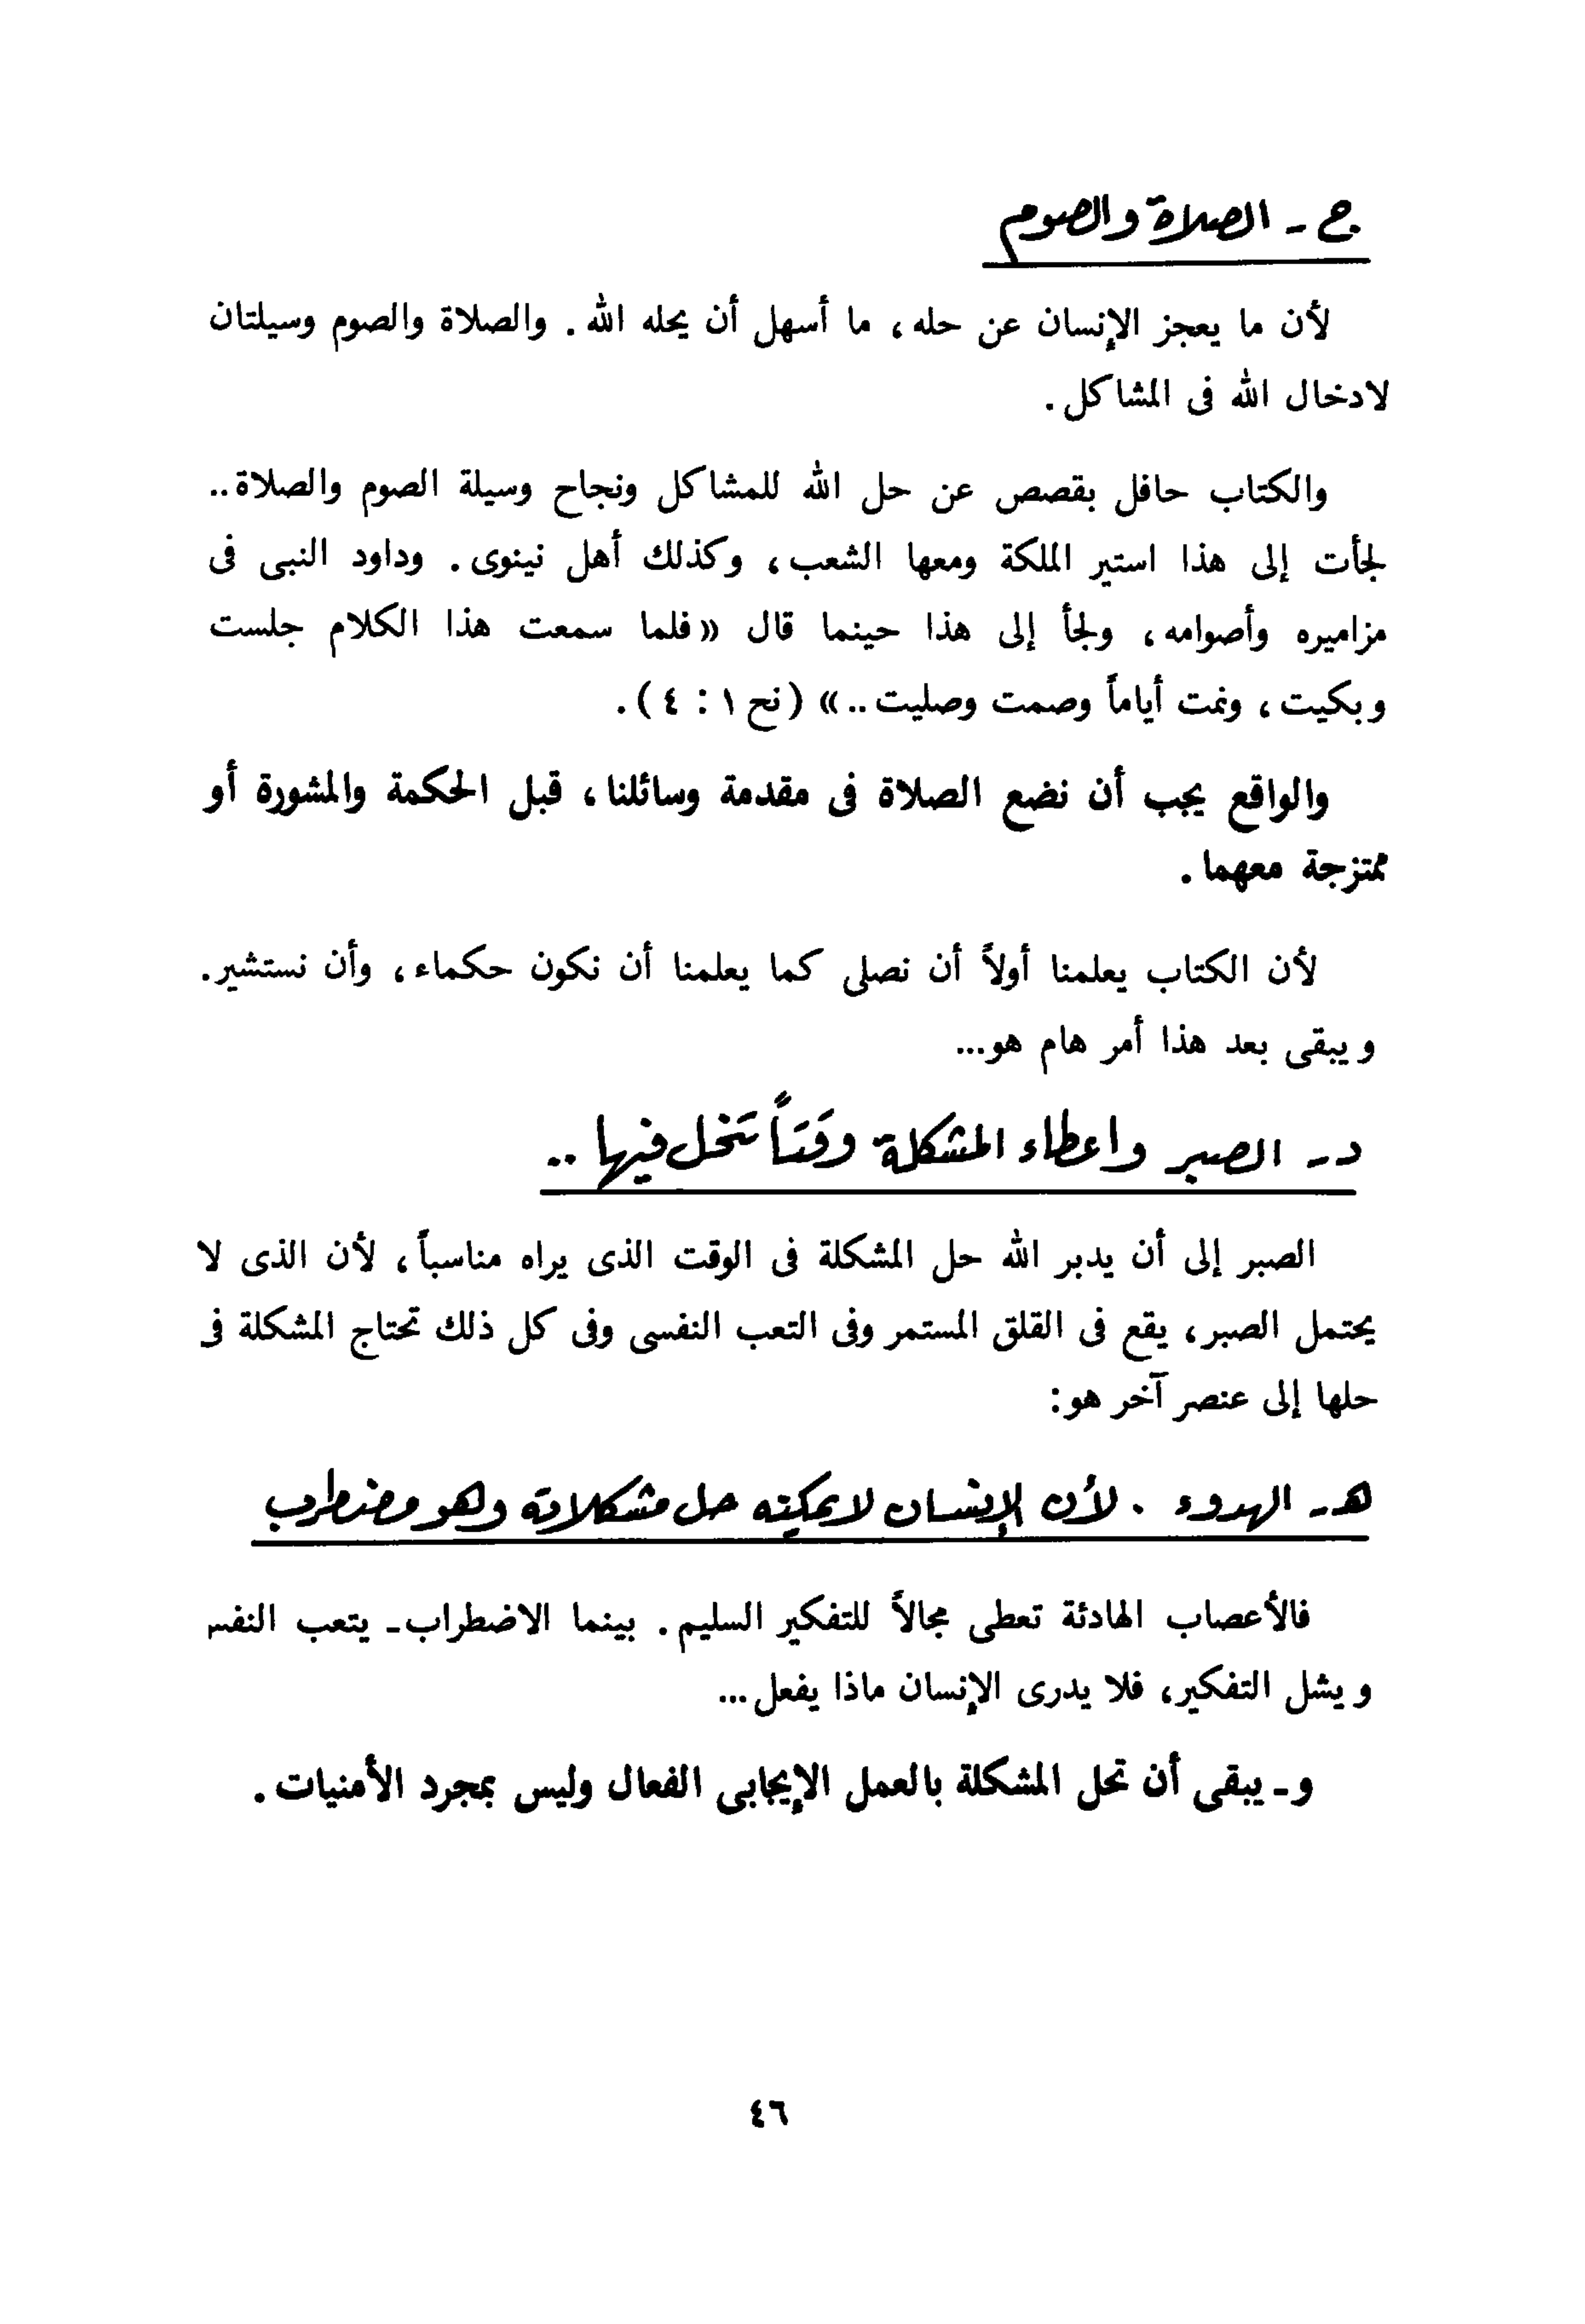 ج - الصلاة والصوم
لأن ما يعجز الإنسان عن حله ، ما أسهل أن يحله الله . والصلاة والصوم وسيلتان
لادخال الله فى المشاكل .
والكتاب حافل بقصص عن حل الله للمشاكل ونجاح وسيلة الصوم والصلاة ..
لجأت إلى هذا استير الملكة ومعها الشعب ، وكذلك أهل نينوى . وداود النبى فى
مزاميره وأصوامه ، ولجأ إلى هذا حينما قال «فلما سمعت هذا الكلام جلست
وبكيت ، ونمت أياماً وصمت وصليت .. » ( نح ١ : ٤ ) .
والواقع يجب أن نضع الصلاة فى مقدمة وسائلنا ، قبل الحكمة والمشورة أو
ممتزجة معهما .
لأن الكتاب يعلمنا أولاً أن نصلى كما يعلمنا أن نكون حكماء ، وأن نستشير .
ويبقى بعد هذا أمر هام هو ...
د - الصبر واعطاء المشكلة وقتاً تنحل فيها ..
الصبر إلى أن يدبر الله حل المشكلة فى الوقت الذى يراه مناسباً ، لأن الذى لا
يحتمل الصبر ، يقع فى القلق المستمر وفى التعب النفسى وفى كل ذلك تحتاج المشكلة فى
حلها إلى عنصر آخر هو :
هـ - الهدوء . لأن الإنسان لا يمكنه حل مشكلاته وهو مضطرب
فالأعصاب الهادئة تعطى مجالاً للتفكير السليم . بينما الاضطراب ـ يتعب النفس
ويشل التفكير ، فلا يدرى الإنسان ماذا يفعل ...
و ـ يبقى أن تحل المشكلة بالعمل الإيجابى الفعال وليس بمجرد الأمنيات .
٤٦